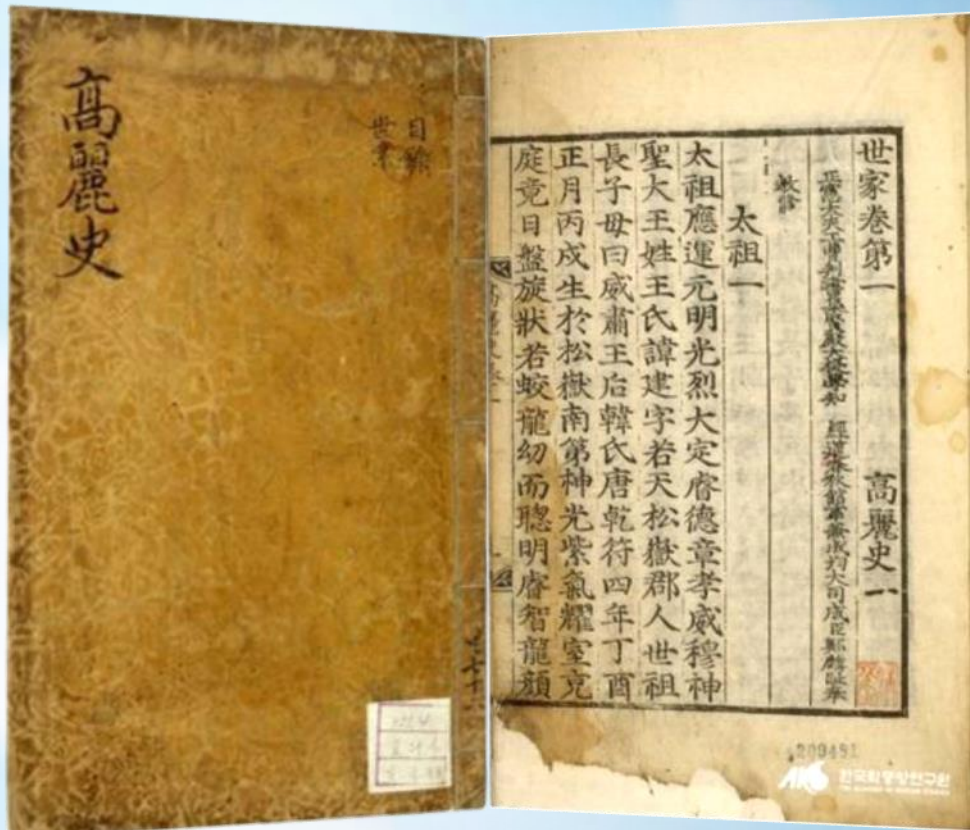 高麗史
目錄
世家卷第一 高麗史一
正憲大夫工曹判書集賢殿大提學知 經筵春秋館事兼成均大司成臣鄭麟趾奉
敎修
太祖一
太祖應運元明光烈大定睿德章孝威穆神
聖大王姓王氏諱建字若天松嶽郡人世祖
長子母曰威肅王后韓氏唐乾符四年丁酉
正月丙戌生於松嶽南第神光紫氣耀室充
庭竟日盤旋狀若蛟龍幼而聰明睿智龍顔
209491
AKS 한국학중앙연구원
THE ACADEMY OF KOREAN STUDIES